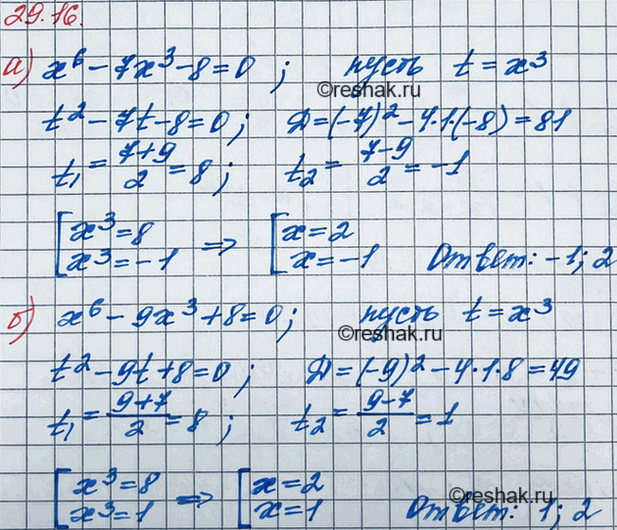 29.16.
а) x⁶ − 7x³ − 8 = 0 ; пусть t = x³
©reshak.ru
t² − 7t − 8 = 0 ; Д = (−7)² − 4·1·(−8) = 81
t₁ = (7+9)/2 = 8 ; t₂ = (7−9)/2 = −1
[x³ = 8 ⇒ [x = 2
x³ = −1 x = −1 Ответ: −1; 2
б) x⁶ − 9x³ + 8 = 0 ; пусть t = x³
©reshak.ru
t² − 9t + 8 = 0 ; Д = (−9)² − 4·1·8 = 49
t₁ = (9+7)/2 = 8 ; t₂ = (9−7)/2 = 1
[x³ = 8 ⇒ [x = 2
x³ = 1 x = 1 Ответ: 1; 2
©reshak.ru